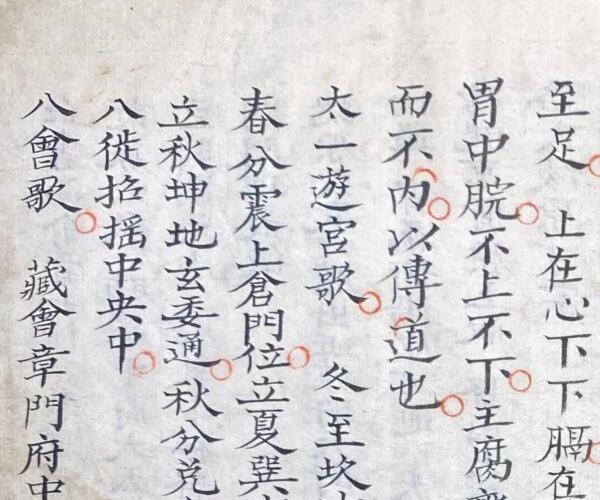 至足 上在心下下膈在
胃中脘不上不下主腐
而不内以傳道也
太一遊宮歌 冬至坎
春分震上倉門位立夏巽
立秋坤地玄委通秋分兌
八徙招摇中央中
八會歌 藏會章門府中